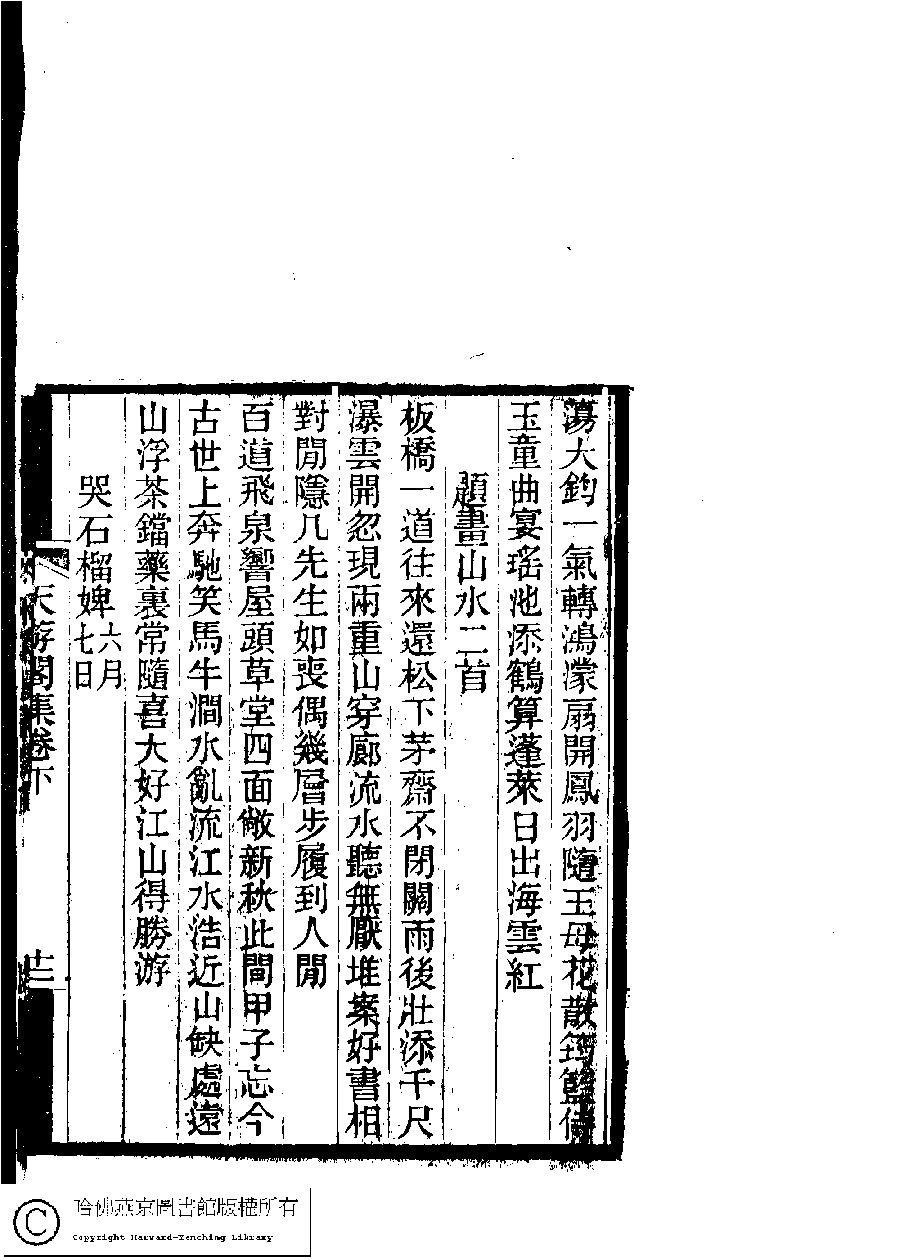 蕩大鈞一氣轉鴻濛扇開鳳羽隨王母花散筠籃侍
玉童曲宴瑤池添鶴算蓬萊日出海雲紅
題畫山水二首
板橋一道往來還松下茅齋不閉關雨後壯添千尺
瀑雲開忽現兩重山穿廊流水聽無厭堆案好書相
對閒隱几先生如喪偶幾層步履到人閒
百道飛泉響屋頭草堂四面敞新秋此間甲子忘今
古世上奔馳笑馬牛澗水亂流江水浩近山缺處遠
山浮茶鐺藥裹常隨喜大好江山得勝游
哭石榴婢六月七日
天游閣集卷下
十二
哈佛燕京圖書館版權所有
Copyright Harvard-Yenching Library